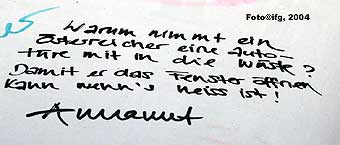 Foto@ifg, 2004
Warum nimmt ein
Östereicher eine Auto-
türe mit in die Wüste?
Damit er das Fenster öffnen
kann wenn's heiss ist!